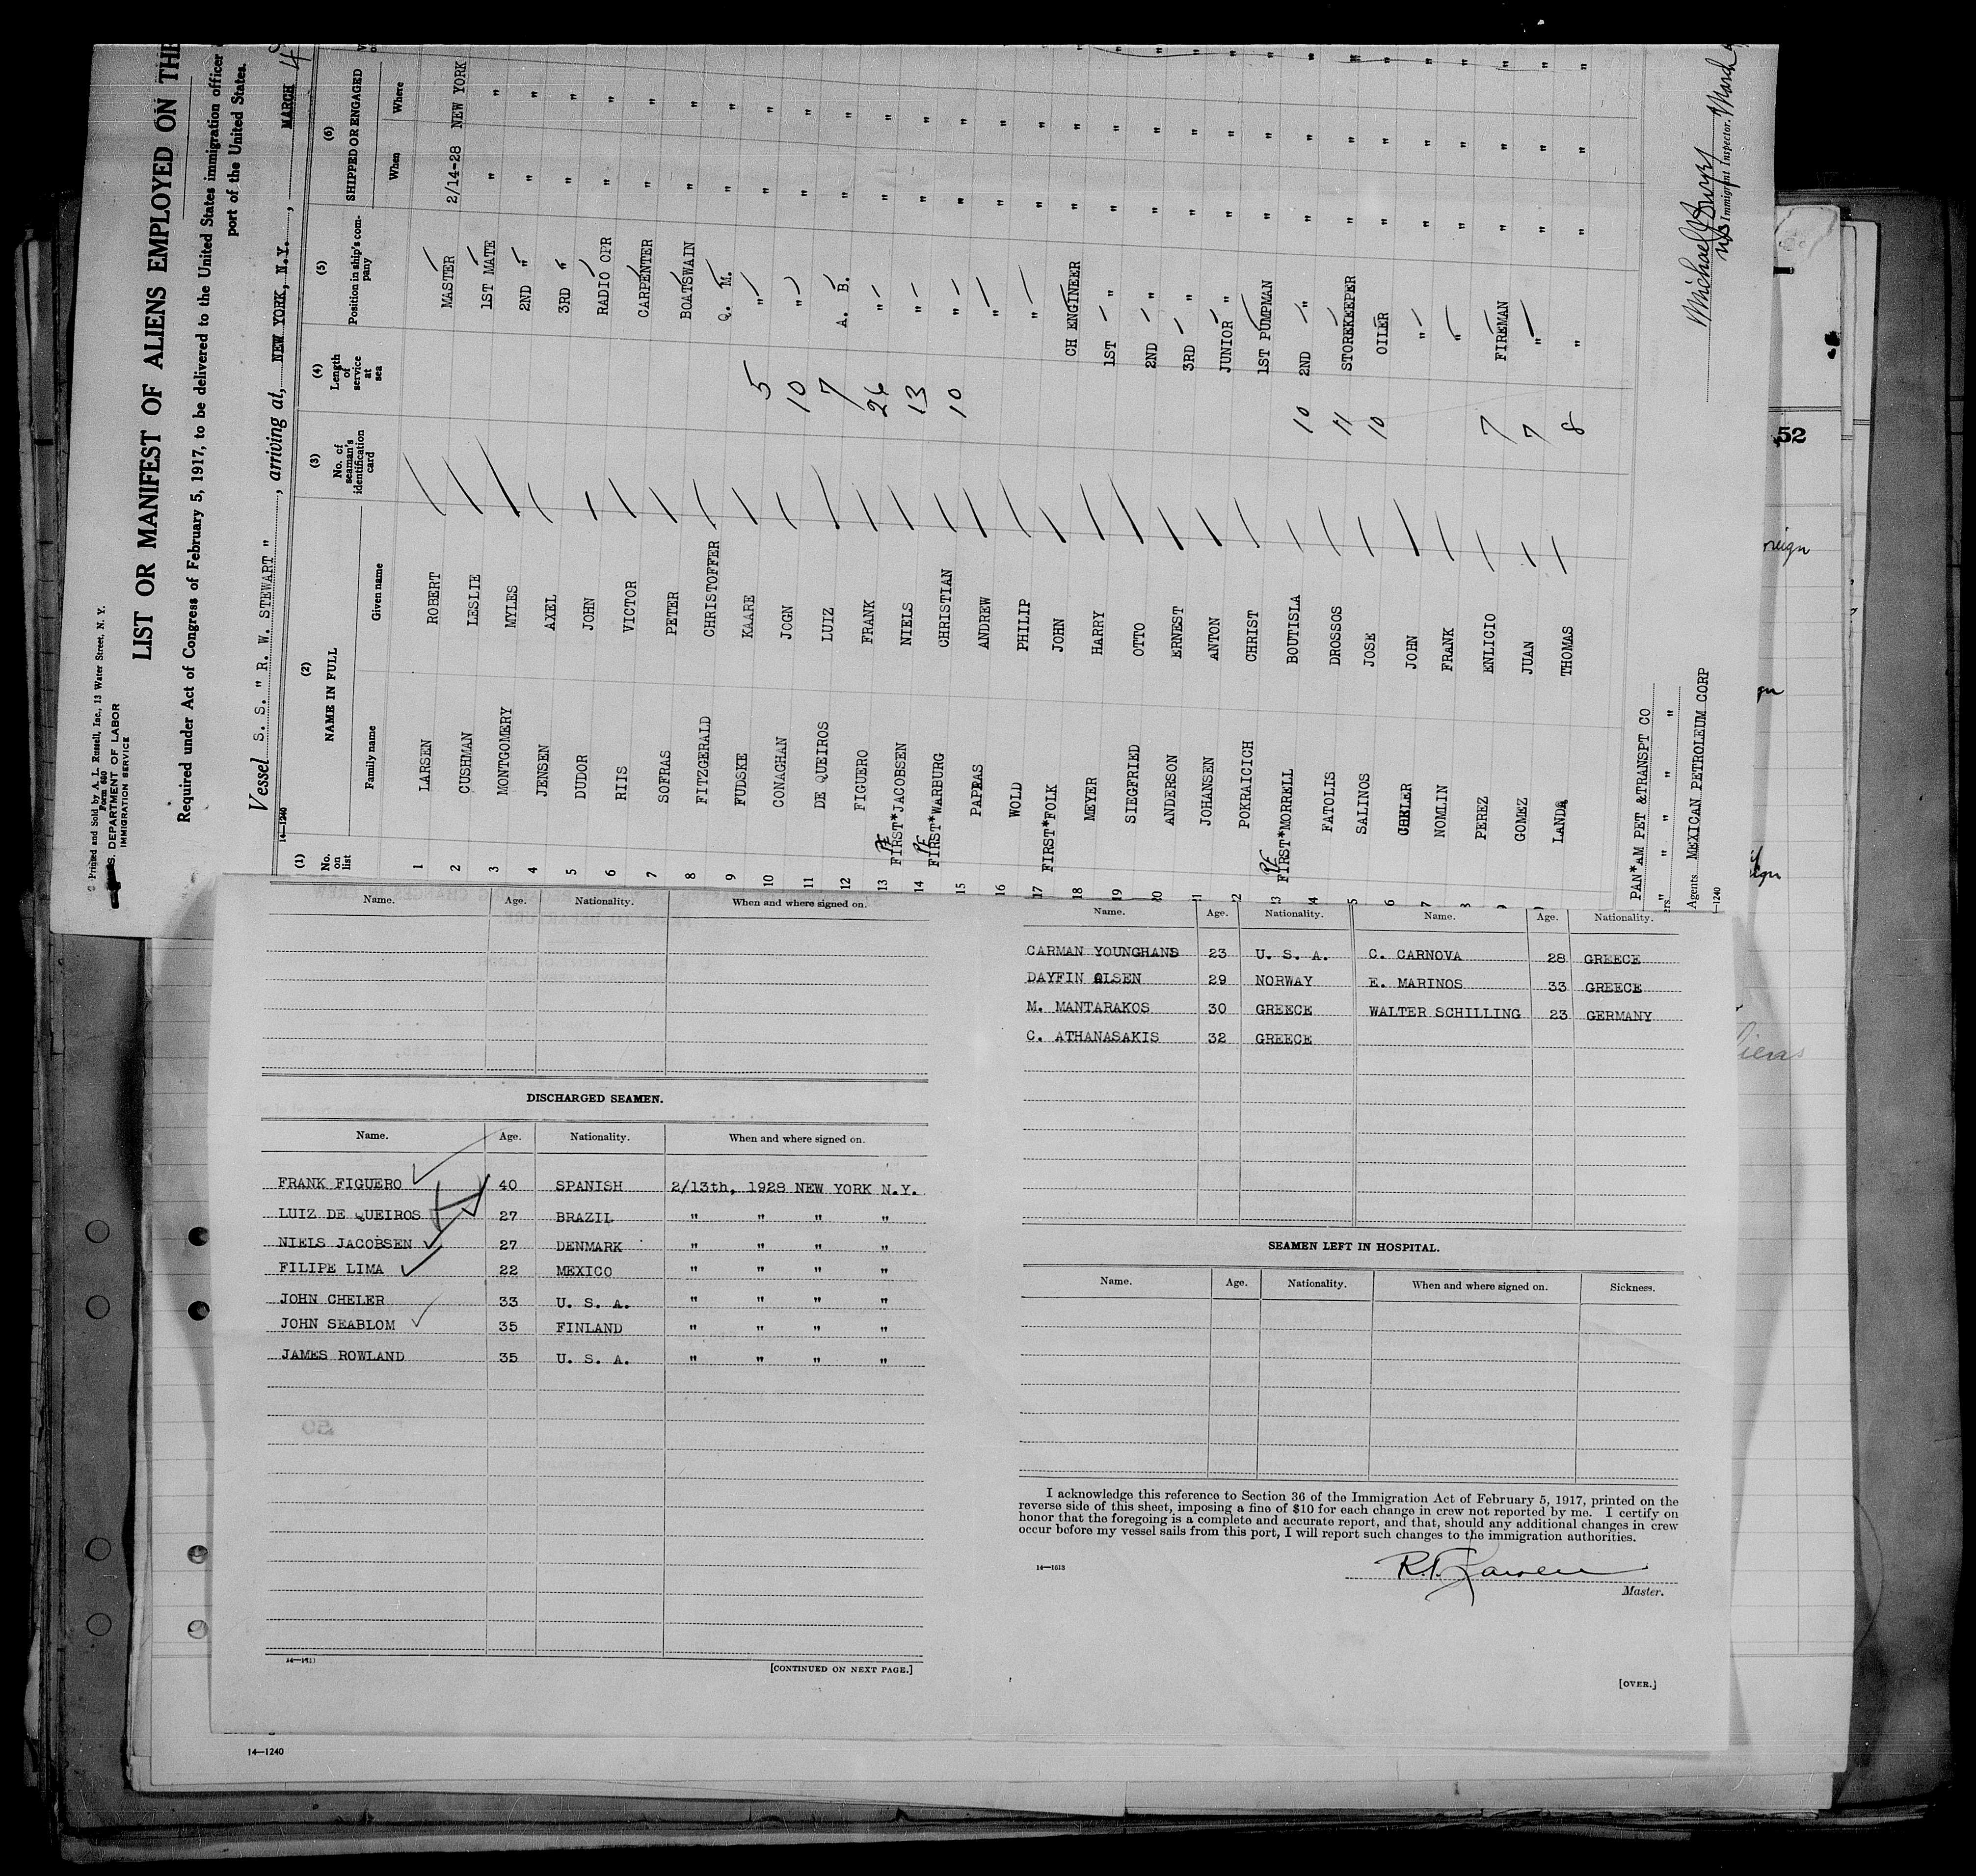 © Printed and Sold by A. L. Russell, Inc., 13 Water Street, N. Y.
Form 680
U. S. DEPARTMENT OF LABOR
IMMIGRATION SERVICE
LIST OR MANIFEST OF ALIENS EMPLOYED ON THE
Required under Act of Congress of February 5, 1917, to be delivered to the United States immigration officer
port of the United States.
Vessel S. S. " R. W. STEWART " , arriving at, NEW YORK, N.Y. , MARCH 4
14—1240
(1) (2) (3) (4) (5) (6)
No. on list NAME IN FULL No. of seaman's identification card Length of service at sea Position in ship's company SHIPPED OR ENGAGED
Family name Given name When Where
1 LARSEN ROBERT MASTER 2/14-28 NEW YORK
2 CUSHMAN LESLIE 1ST MATE " "
3 MONTGOMERY MYLES 2ND " " "
4 JENSEN AXEL 3RD " " "
5 DUDOR JOHN RADIO OPR " "
6 RIIS VICTOR CARPENTER " "
7 SOFRAS PETER BOATSWAIN " "
8 FITZGERALD CHRISTOFFER Q. M. " "
9 FUDSKE KAARE 5 " " "
10 CONAGHAN JOGN 10 " " "
11 DE QUEIROS LUIZ 7 A. B. " "
12 FIGUERO FRANK 26 " " "
13 FIRST*JACOBSEN NIELS 13 " " "
14 FIRST*WARBURG CHRISTIAN 10 " " "
15 PAPPAS ANDREW " " "
16 WOLD PHILIP " " "
17 FIRST*FOLK JOHN CH ENGINEER " "
18 MEYER HARRY 1ST " " "
19 SIEGFRIED OTTO 2ND " " "
20 ANDERSON ERNEST 3RD " " "
1 JOHANSEN ANTON JUNIOR " " "
2 POKRAICICH CHRIST 1ST PUMPMAN " "
3 FIRST*MORRELL BOUTISLA 10 2ND " " "
4 FATOLIS DROSSOS 11 STOREKEEPER " "
5 SALINOS JOSE 10 OILER " "
6 CHELER JOHN " " "
7 NOMLIN FRANK " " "
8 PEREZ ENLICIO 7 FIREMAN " "
9 GOMEZ JUAN 7 " " "
LANDA THOMAS 8 " " "
PAN*AM PET &TRANSPT CO
" " " " "
Agents MEXICAN PETROLEUM CORP
Immigrant Inspector. March
52
Name. Age. Nationality. When and where signed on.
DISCHARGED SEAMEN.
Name. Age. Nationality. When and where signed on.
FRANK FIGUERO 40 SPANISH 2/13th, 1928 NEW YORK N.Y.
LUIZ DE QUEIROS 27 BRAZIL " " " "
NIELS JACOBSEN 27 DENMARK " " " "
FILIPE LIMA 22 MEXICO " " " "
JOHN CHELER 33 U. S. A. " " " "
JOHN SEABLOM 35 FINLAND " " " "
JAMES ROWLAND 35 U. S. A. " " " "
[CONTINUED ON NEXT PAGE.]
14—1240
Name. Age. Nationality. Name. Age. Nationality.
CARMAN YOUNGHANS 23 U. S. A. C. CARNOVA 28 GREECE
DAYFIN OLSEN 29 NORWAY E. MARINOS 33 GREECE
M. MANTARAKOS 30 GREECE WALTER SCHILLING 23 GERMANY
C. ATHANASAKIS 32 GREECE
SEAMEN LEFT IN HOSPITAL.
Name. Age. Nationality. When and where signed on. Sickness.
I acknowledge this reference to Section 36 of the Immigration Act of February 5, 1917, printed on the
reverse side of this sheet, imposing a fine of $10 for each change in crew not reported by me. I certify on
honor that the foregoing is a complete and accurate report, and that, should any additional changes in crew
occur before my vessel sails from this port, I will report such changes to the immigration authorities.
14—1613
R. T. Larsen
Master.
[OVER.]